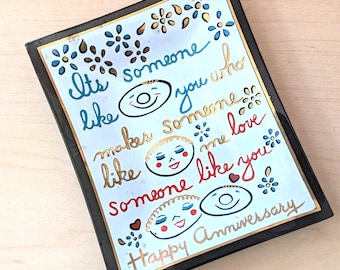 Its someone
like you who
makes someone
like me love
someone like you
Happy Anniversary